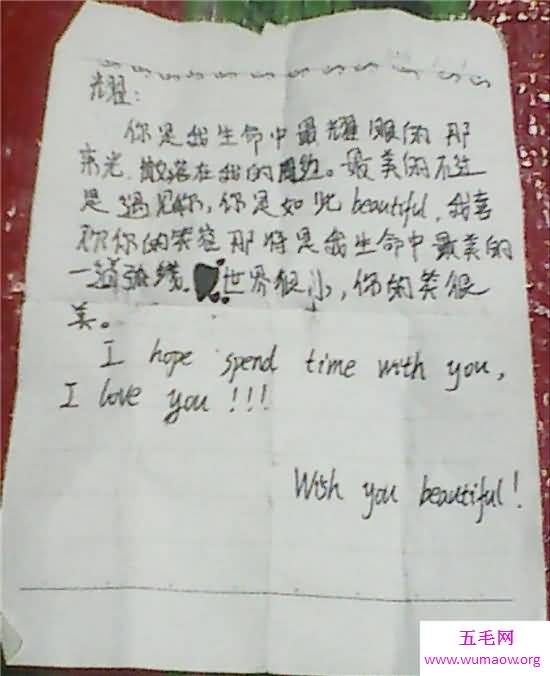 耀：
你是我生命中最耀眼的那
束光，散落在我的周边。最美的不过
是遇见你，你是如此beautiful，我喜
欢你的笑容那将是我生命中最美的
一道弧线。世界很小，你的笑很
美。
I hope spend time with you,
I love you!!!
Wish you beautiful!
五毛网
www.wumaow.org